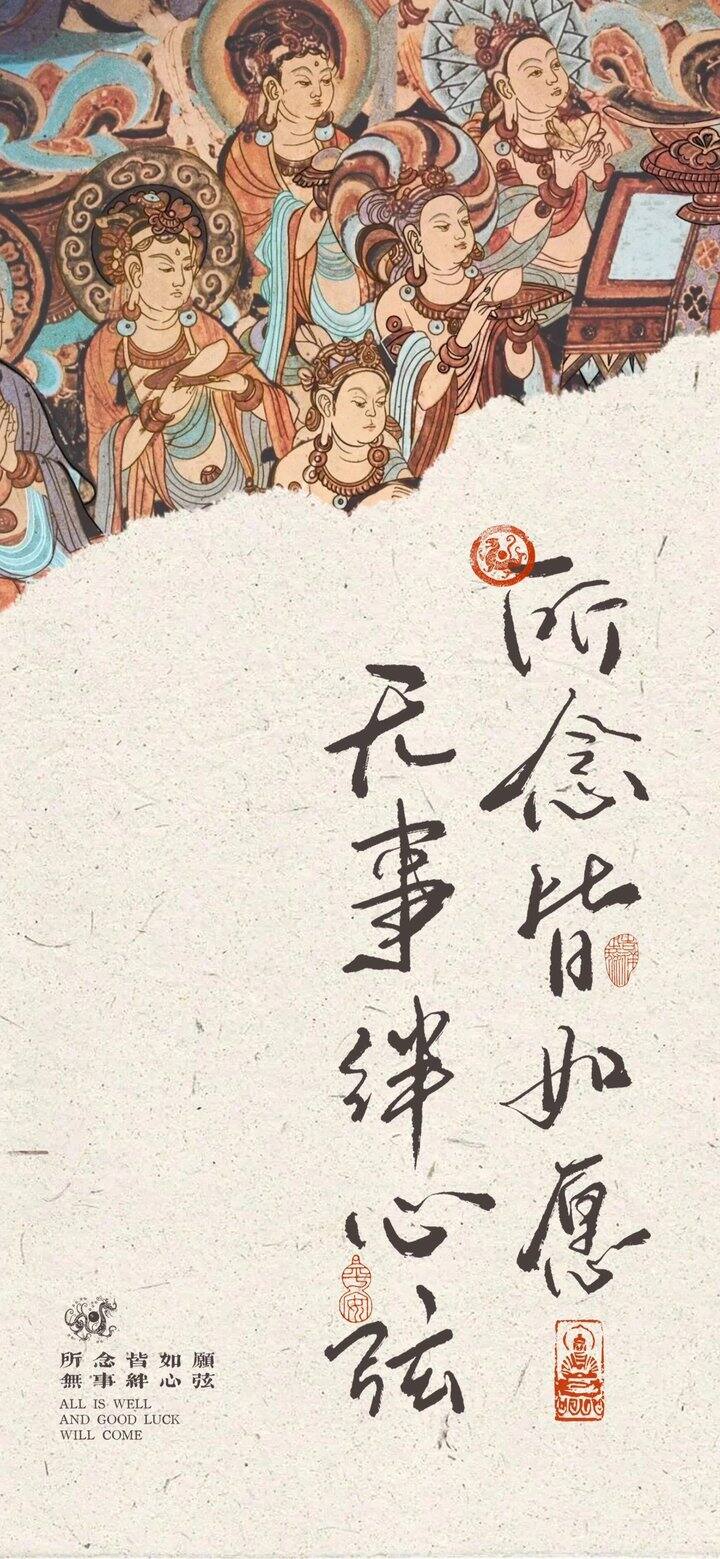 所念皆如愿
无事绊心弦
平安
所念皆如願
無事絆心弦
ALL IS WELL
AND GOOD LUCK
WILL COME